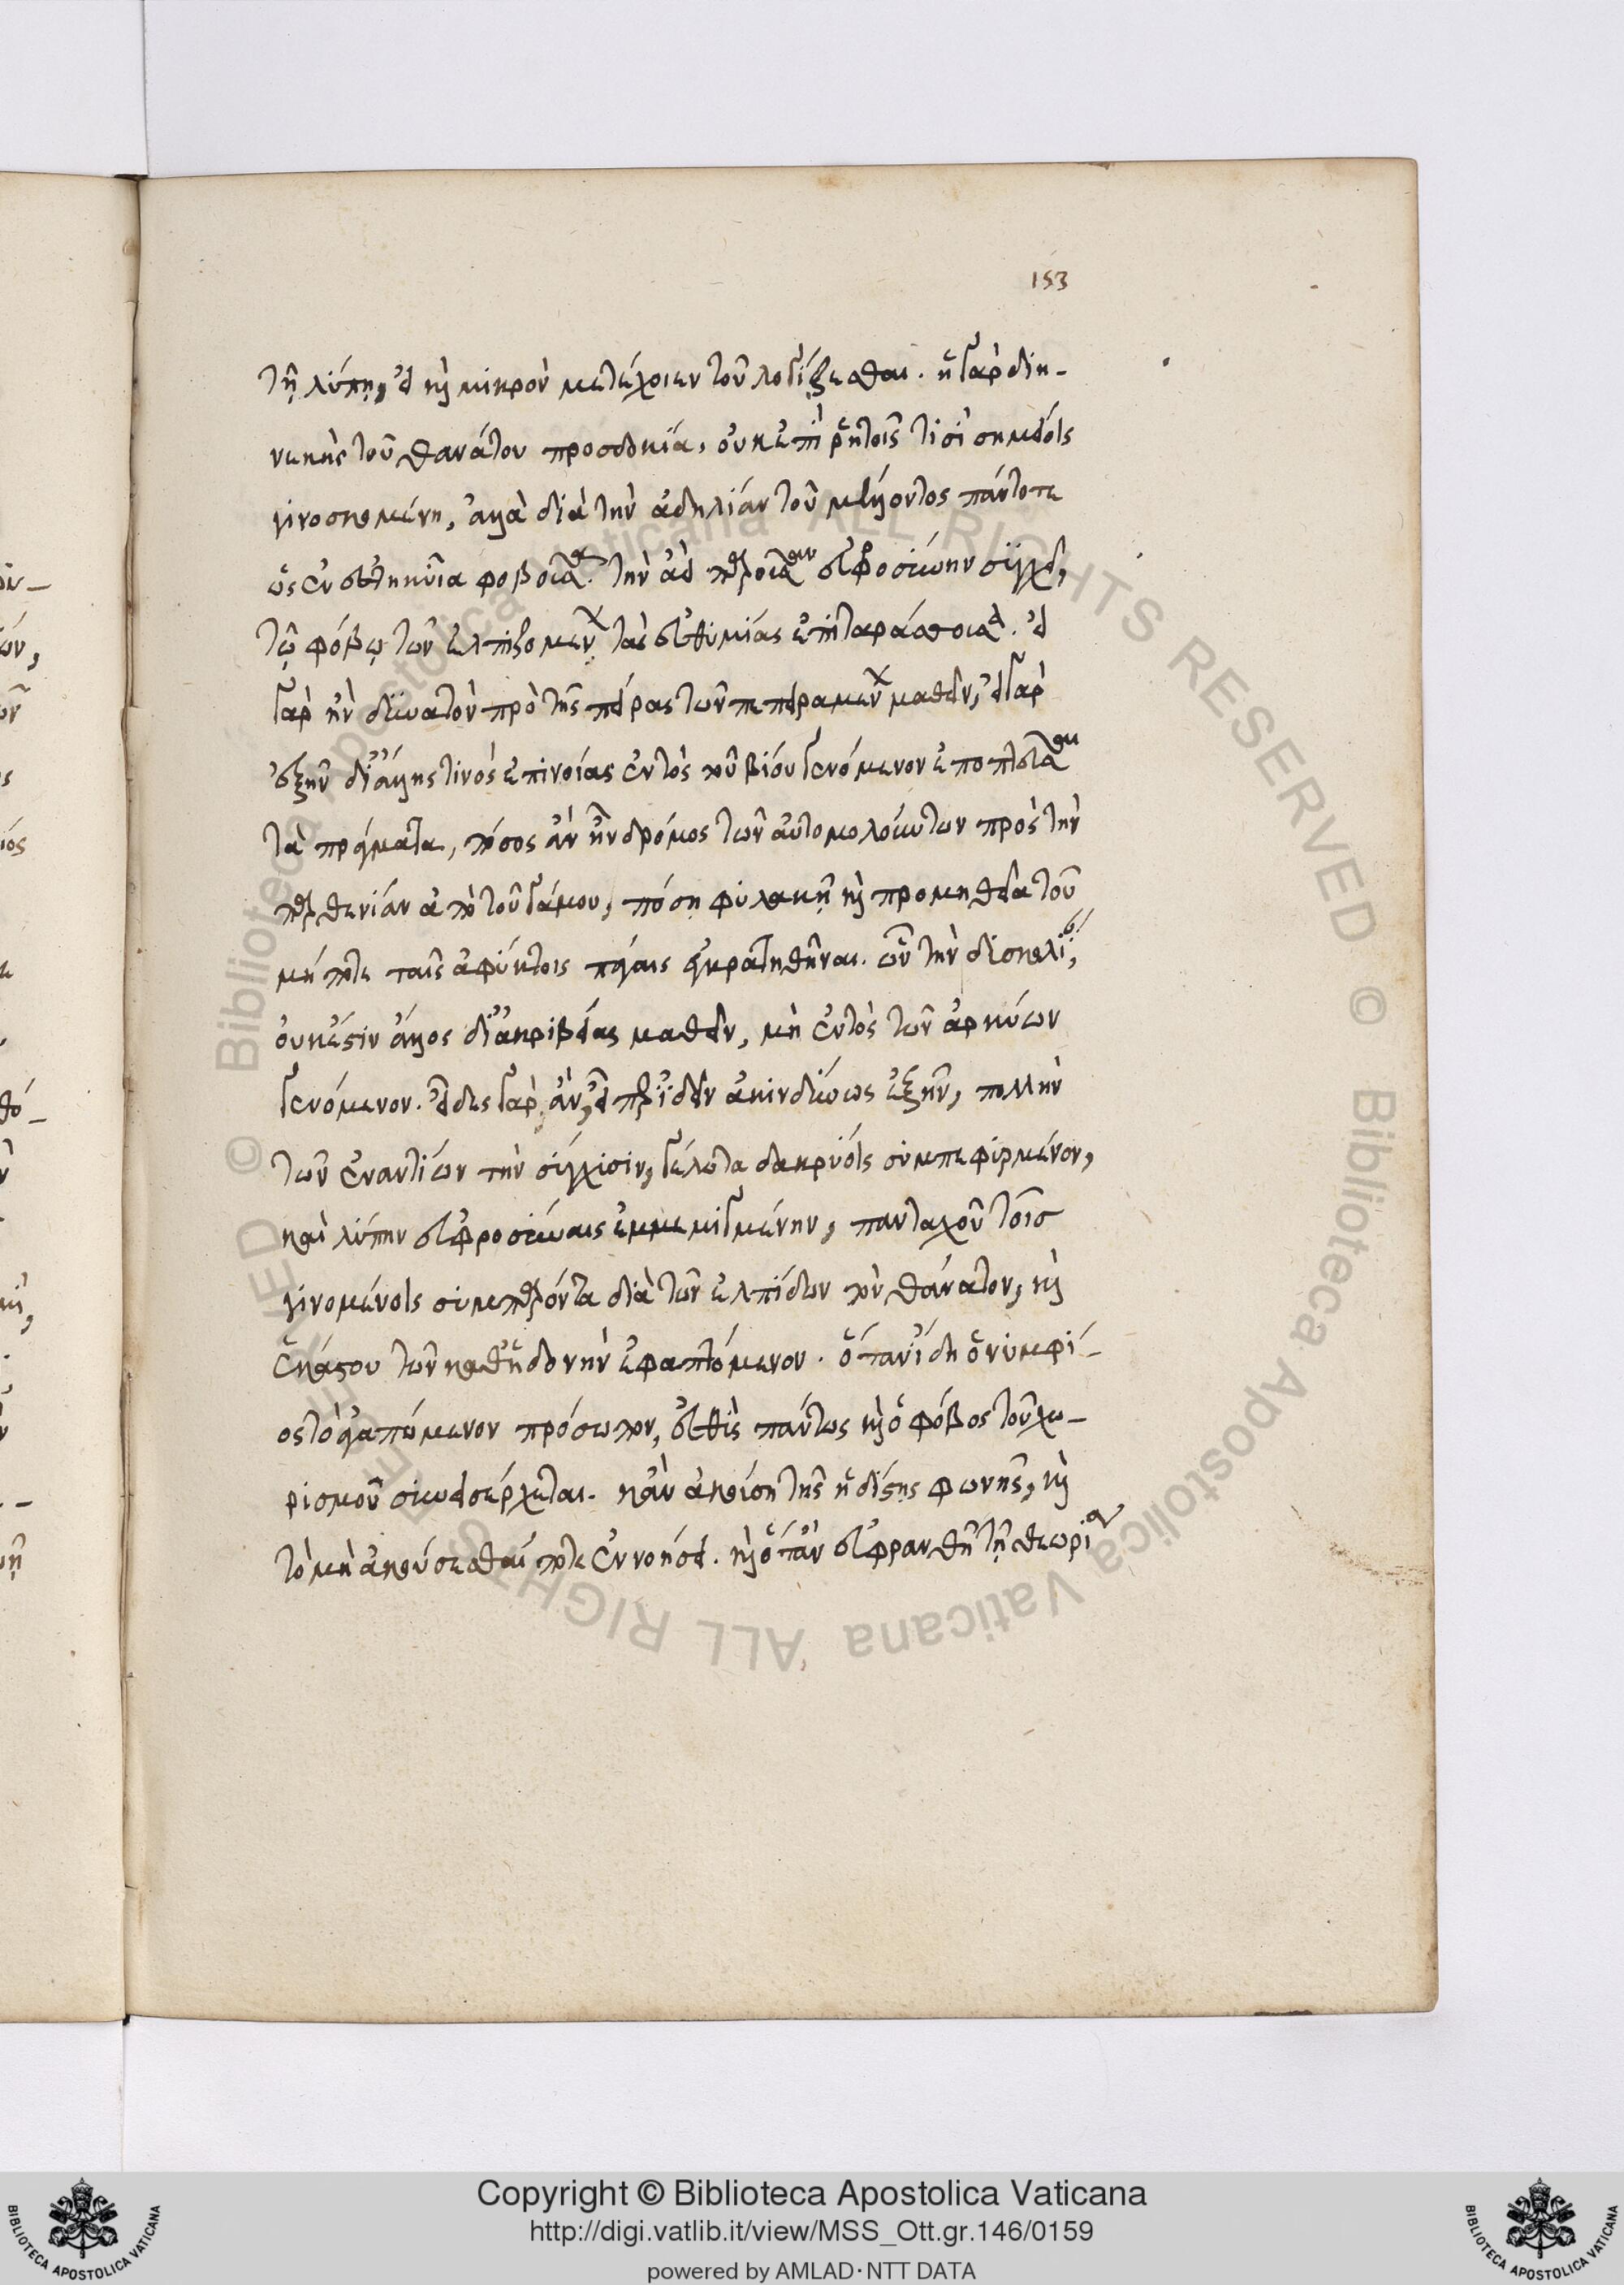 153
τῇ λύπῃ, εἰ καὶ μικρὸν μετέχοιεν τοῦ λογίζεσθαι. ἡ γὰρ διη-
νεκὴς τοῦ θανάτου προσδοκία, οὐκ ἐπὶ ῥητοῖς τισὶ σημείοις
γινοσκομένη, ἀλλὰ διὰ τὴν ἀδηλίαν τοῦ μέλλοντος πάντοτε
ὡς ἐνεστηκυῖα φοβοῦσα. τὴν ἀεὶ παροῦσαν εὐφροσύνην συγχεῖ,
τῷ φόβῳ τῶν ἐλπιζομένων τὰς εὐθυμίας ἐπιταράσσουσα. εἰ
γὰρ ἦν δυνατὸν πρὸ τῆς πείρας τῶν πεπειραμένων μαθεῖν, εἰ γὰρ
ἐξῆν δι ἄλλης τινὸς ἐπινοίας ἐντὸς τοῦ βίου γενόμενον ἐποπτεῦσαι
τὰ πράγματα, πόσος ἂν ἦν δρόμος τῶν αὐτομολούντων πρὸς τὴν
παρθενίαν ἀπὸ τοῦ γάμου, πόση φυλακὴ καὶ προμηθεία τοῦ
μή ποτε ταῖς ἀφύκτοις πάγαις ἐγκρατηθῆναι. ὧν τὴν δυσκολίαν,
οὐκ ἔστιν ἄλλος δι ἀκριβείας μαθεῖν, μὴ ἐντὸς τῶν ἀρκύων
γενόμενον. εἶδες γὰρ ἂν, εἴπερ ἰδεῖν ἀκινδύνως ἐξῆν, πολλὴν
τῶν ἐναντίων τὴν σύγχισιν, γέλωτα δακρύοις συμπεφυρμένον,
καὶ λύπην εὐφροσύναις ἐμμεμιγμένην, πανταχοῦ τοῖς
γινομένοις συμπαρόντα διὰ τῶν ἐλπίδων τὸν θάνατον, καὶ
ἑκάστου τῶν καθ ἡδονὴν ἐφαπτόμενον. ὅταν ἴδη ὁ νυμφί-
ος τὸ ἀγαπώμενον πρόσωπον, εὐθὺς πάντως καὶ ὁ φόβος τοῦ χω-
ρισμοῦ συνεισέρχεται. κἂν ἀκούση τῆς ἡδίστης φωνῆς, καὶ
τὸ μὴ ἀκούσεσθαί ποτε ἐννοήσει. καὶ ὅταν εὐφρανθῇ τῇ θεωρία
Copyright © Biblioteca Apostolica Vaticana
http://digi.vatlib.it/view/MSS_Ott.gr.146/0159
powered by AMLAD·NTT DATA